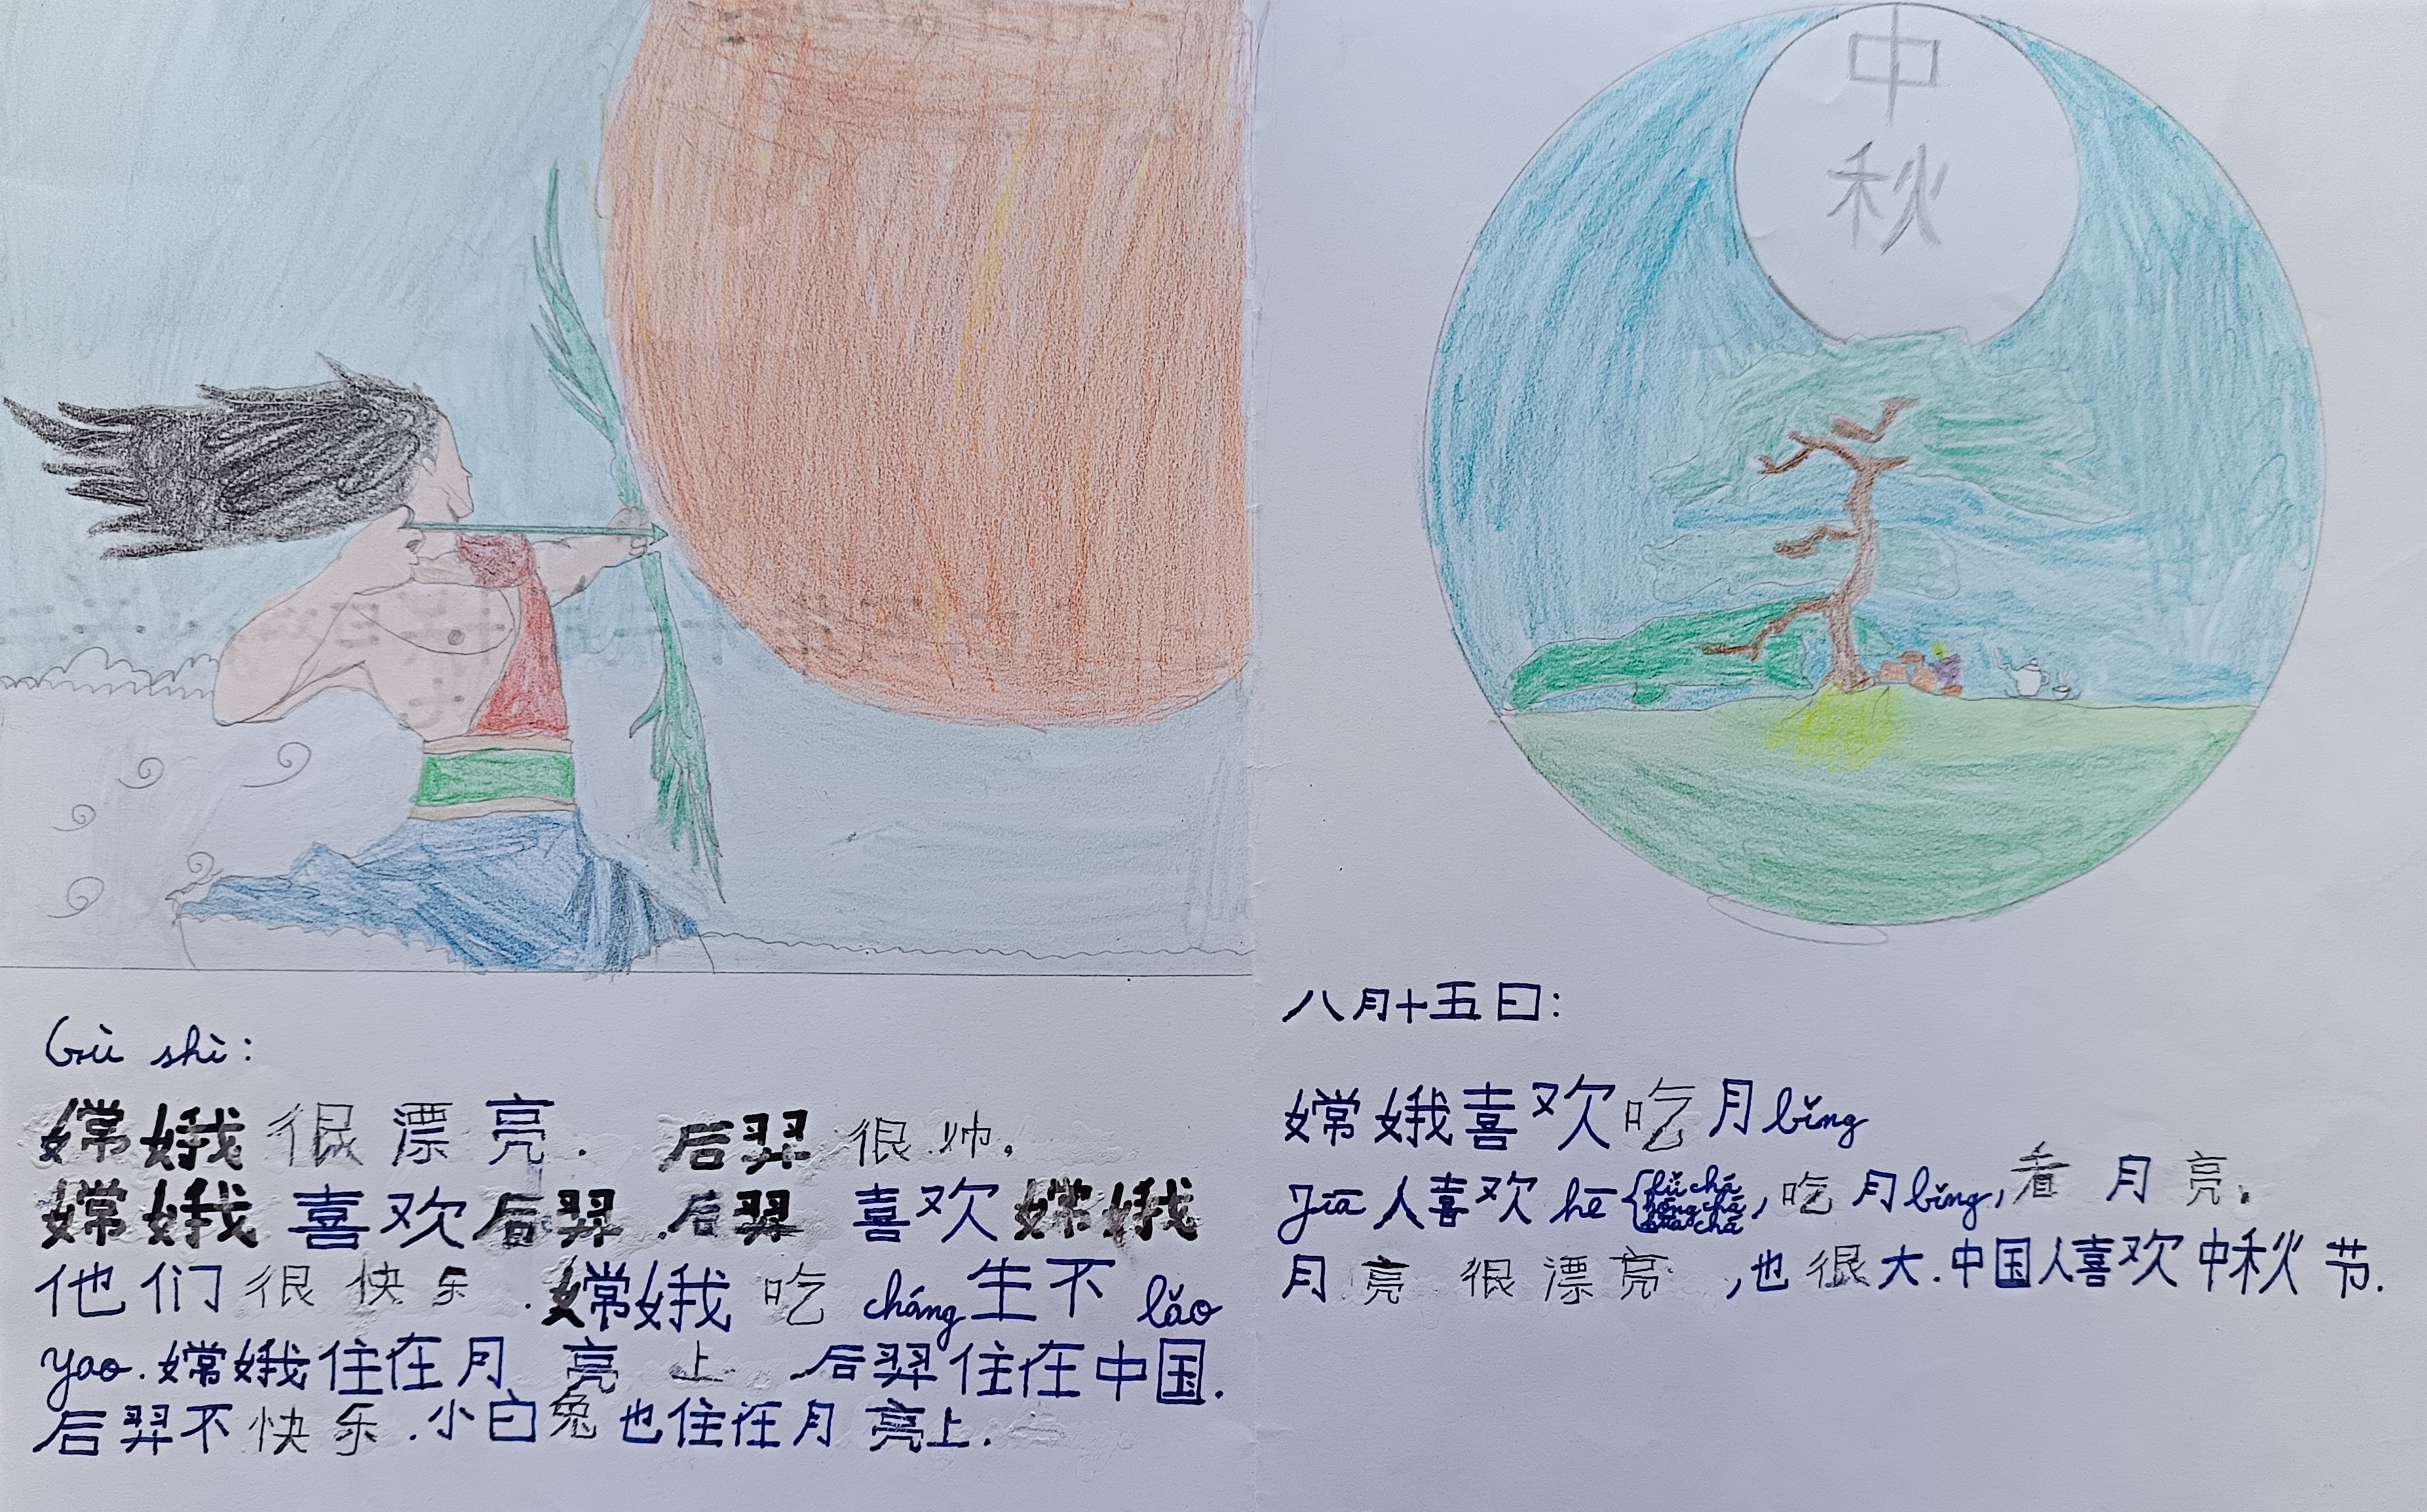 Gù shì:
嫦娥很漂亮. 后羿很帅.
嫦娥喜欢后羿.后羿 喜欢嫦娥
他们很快乐.嫦娥吃 cháng生不 lǎo
yao.嫦娥住在月亮上 后羿住在中国.
后羿不快乐.小白兔也住在月亮上.
中
秋
八月十五日:
嫦娥喜欢吃月bǐng
Jiā人喜欢 hē {lǜ chá hóng chá huā chá, 吃月bǐng,看月亮.
月亮很漂亮,也很大.中国人喜欢中秋节.